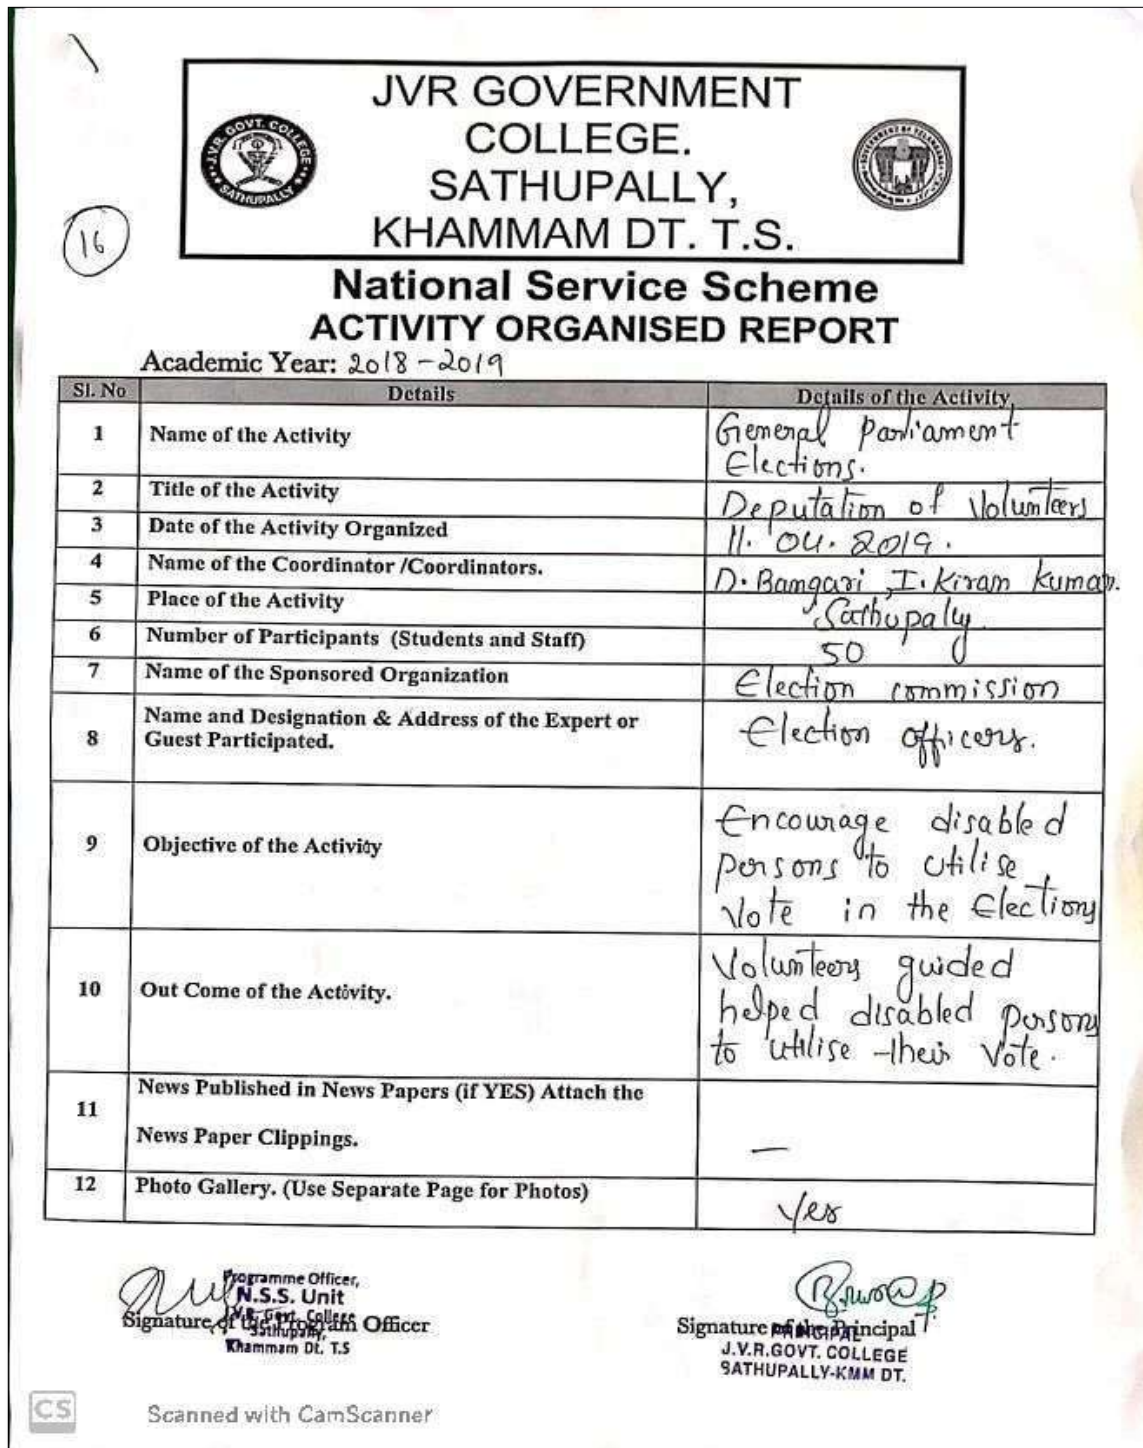 JVR GOVERNMENT
COLLEGE.
SATHUPALLY,
KHAMMAM DT. T.S.
J.V.R. GOVT. COLLEGE
SATHUPALLY
16
National Service Scheme
ACTIVITY ORGANISED REPORT
Academic Year: 2018-2019
Sl. No Details Details of the Activity
1 Name of the Activity General Parliament
Elections.
2 Title of the Activity Deputation of Volunteers
3 Date of the Activity Organized 11.04.2019.
4 Name of the Coordinator /Coordinators. D. Bangari, I. Kiran Kumar.
5 Place of the Activity Sathupally
6 Number of Participants (Students and Staff) 50
7 Name of the Sponsored Organization Election commission
8 Name and Designation & Address of the Expert or
Guest Participated. Election officers.
9 Objective of the Activity Encourage disabled
persons to utilise
Vote in the Elections
10 Out Come of the Activity. Volunteers guided
helped disabled persons
to utilise their Vote.
11 News Published in News Papers (if YES) Attach the
News Paper Clippings. —
12 Photo Gallery. (Use Separate Page for Photos) Yes
Programme Officer,
N.S.S. Unit
J.V.R. Govt. College
Sathupally,
Khammam Dt. T.S
Signature of the Program Officer
Signature of the Principal
PRINCIPAL
J.V.R.GOVT. COLLEGE
SATHUPALLY-KMM DT.
CS Scanned with CamScanner